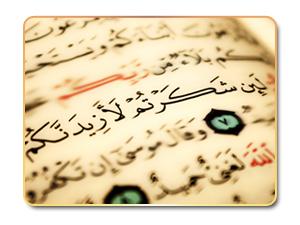 بَلَاءٌ مِّن رَّبِّكُمْ
لَئِن شَكَرْتُمْ لَأَزِيدَنَّكُمْ
٧ وَقَالَ مُوسَىٰ إِن تَكْفُرُوا
اللَّهَ لَغَنِيٌّ حَمِيدٌ